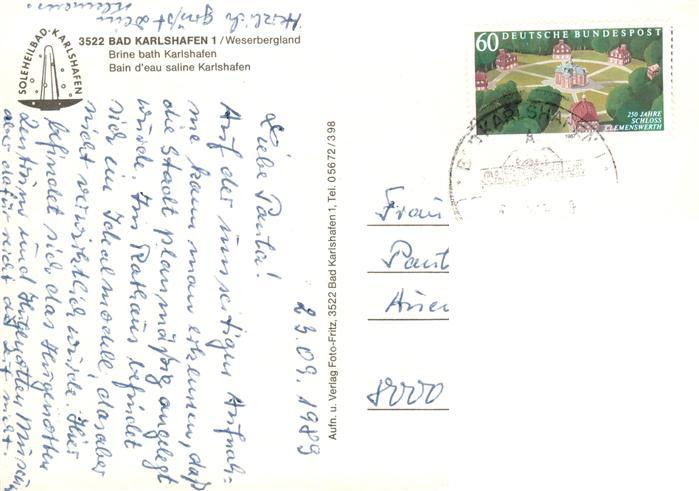 SOLEHEILBAD · KARLSHAFEN
3522 BAD KARLSHAFEN 1 / Weserbergland
Brine bath Karlshafen
Bain d'eau saline Karlshafen
23.09.1989
Liebe Paula!
Auf der umseitigen Aufnah-
me kann man erkennen, daß
die Stadt planmäßig angelegt
wurde. Im Rathaus befindet
sich ein Idealmodell, das aber
nicht verwirklicht wurde. Hier
befindet sich das Hugenotten
Zentrum und Hugenotten Museum
aber dafür reicht die Zeit nicht.
Herzlich grüßt Dein
Klemens
Aufn. u. Verlag Foto-Fritz, 3522 Bad Karlshafen 1, Tel. 05672/398
60 DEUTSCHE BUNDESPOST
250 JAHRE
SCHLOSS
CLEMENSWERTH
1987
BAD KARLSHAFEN 1
Frau
8000